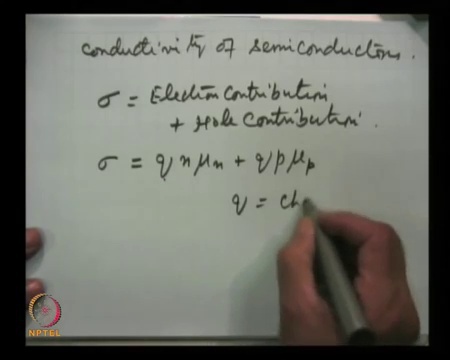 conductivity of semiconductors.
σ = Electron contribution
+ Hole contribution.
σ = q n μn + q p μp
q = ch
NPTEL